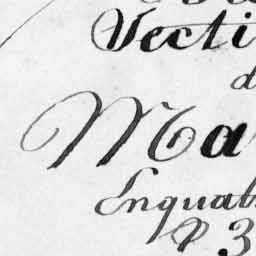 Vecti
d
Ma
Enquab
P 3